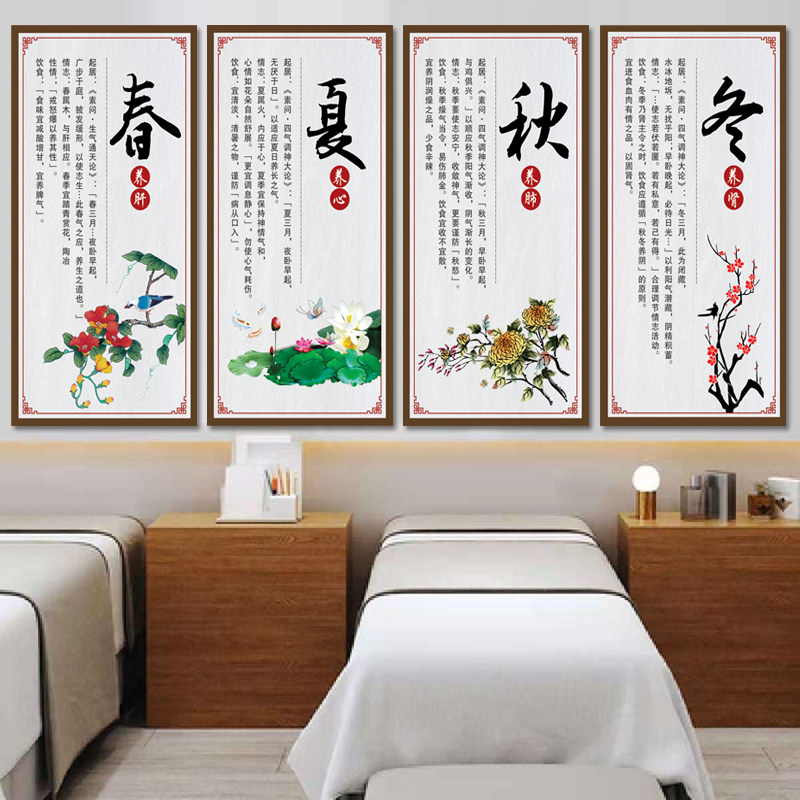 春
养肝
起居：《素问·生气通天论》：「春三月…夜卧早起，
广步于庭，披发缓形，以使志生…此春气之应，养生之道也。」
情志：春属木，与肝相应。春季宜踏青赏花，陶冶
性情；「戒怒爆以养其性」。
饮食：「食味宜减酸增甘，宜养脾气」。
夏
养心
起居：《素问·四气调神大论》：「夏三月，夜卧早起，
无厌于日」。以适应夏日养长之气。
情志：夏属火，内应于心，夏季宜保持神情气和，
心情如花朵自然舒展。「更宜调息静心」，勿使心气耗伤。
饮食：宜清淡、清暑之物，谨防「病从口入」。
秋
养肺
起居：《素问·四气调神大论》：「秋三月，早卧早起，
与鸡俱兴。」以顺应秋季阳气渐收，阴气渐长的变化。
情志：秋季要使志安宁，收敛神气，更要谨防「秋愁」。
饮食：秋季燥气当令，易伤肺金。饮食宜收不宜散，
宜养阴润燥之品，少食辛辣。
冬
养肾
起居：《素问·四气调神大论》：「冬三月，此为闭藏，
水冰地坼，无扰乎阳；早卧晚起，必待日光…」以利阳气潜藏，阴精积蓄。
情志：「…使志若伏若匿。若有私意，若己有得。」合理调节情志活动。
饮食：冬季乃肾主令之时，饮食应遵循「秋冬养阴」的原则。
宜进食血肉有情之品，以固肾气。